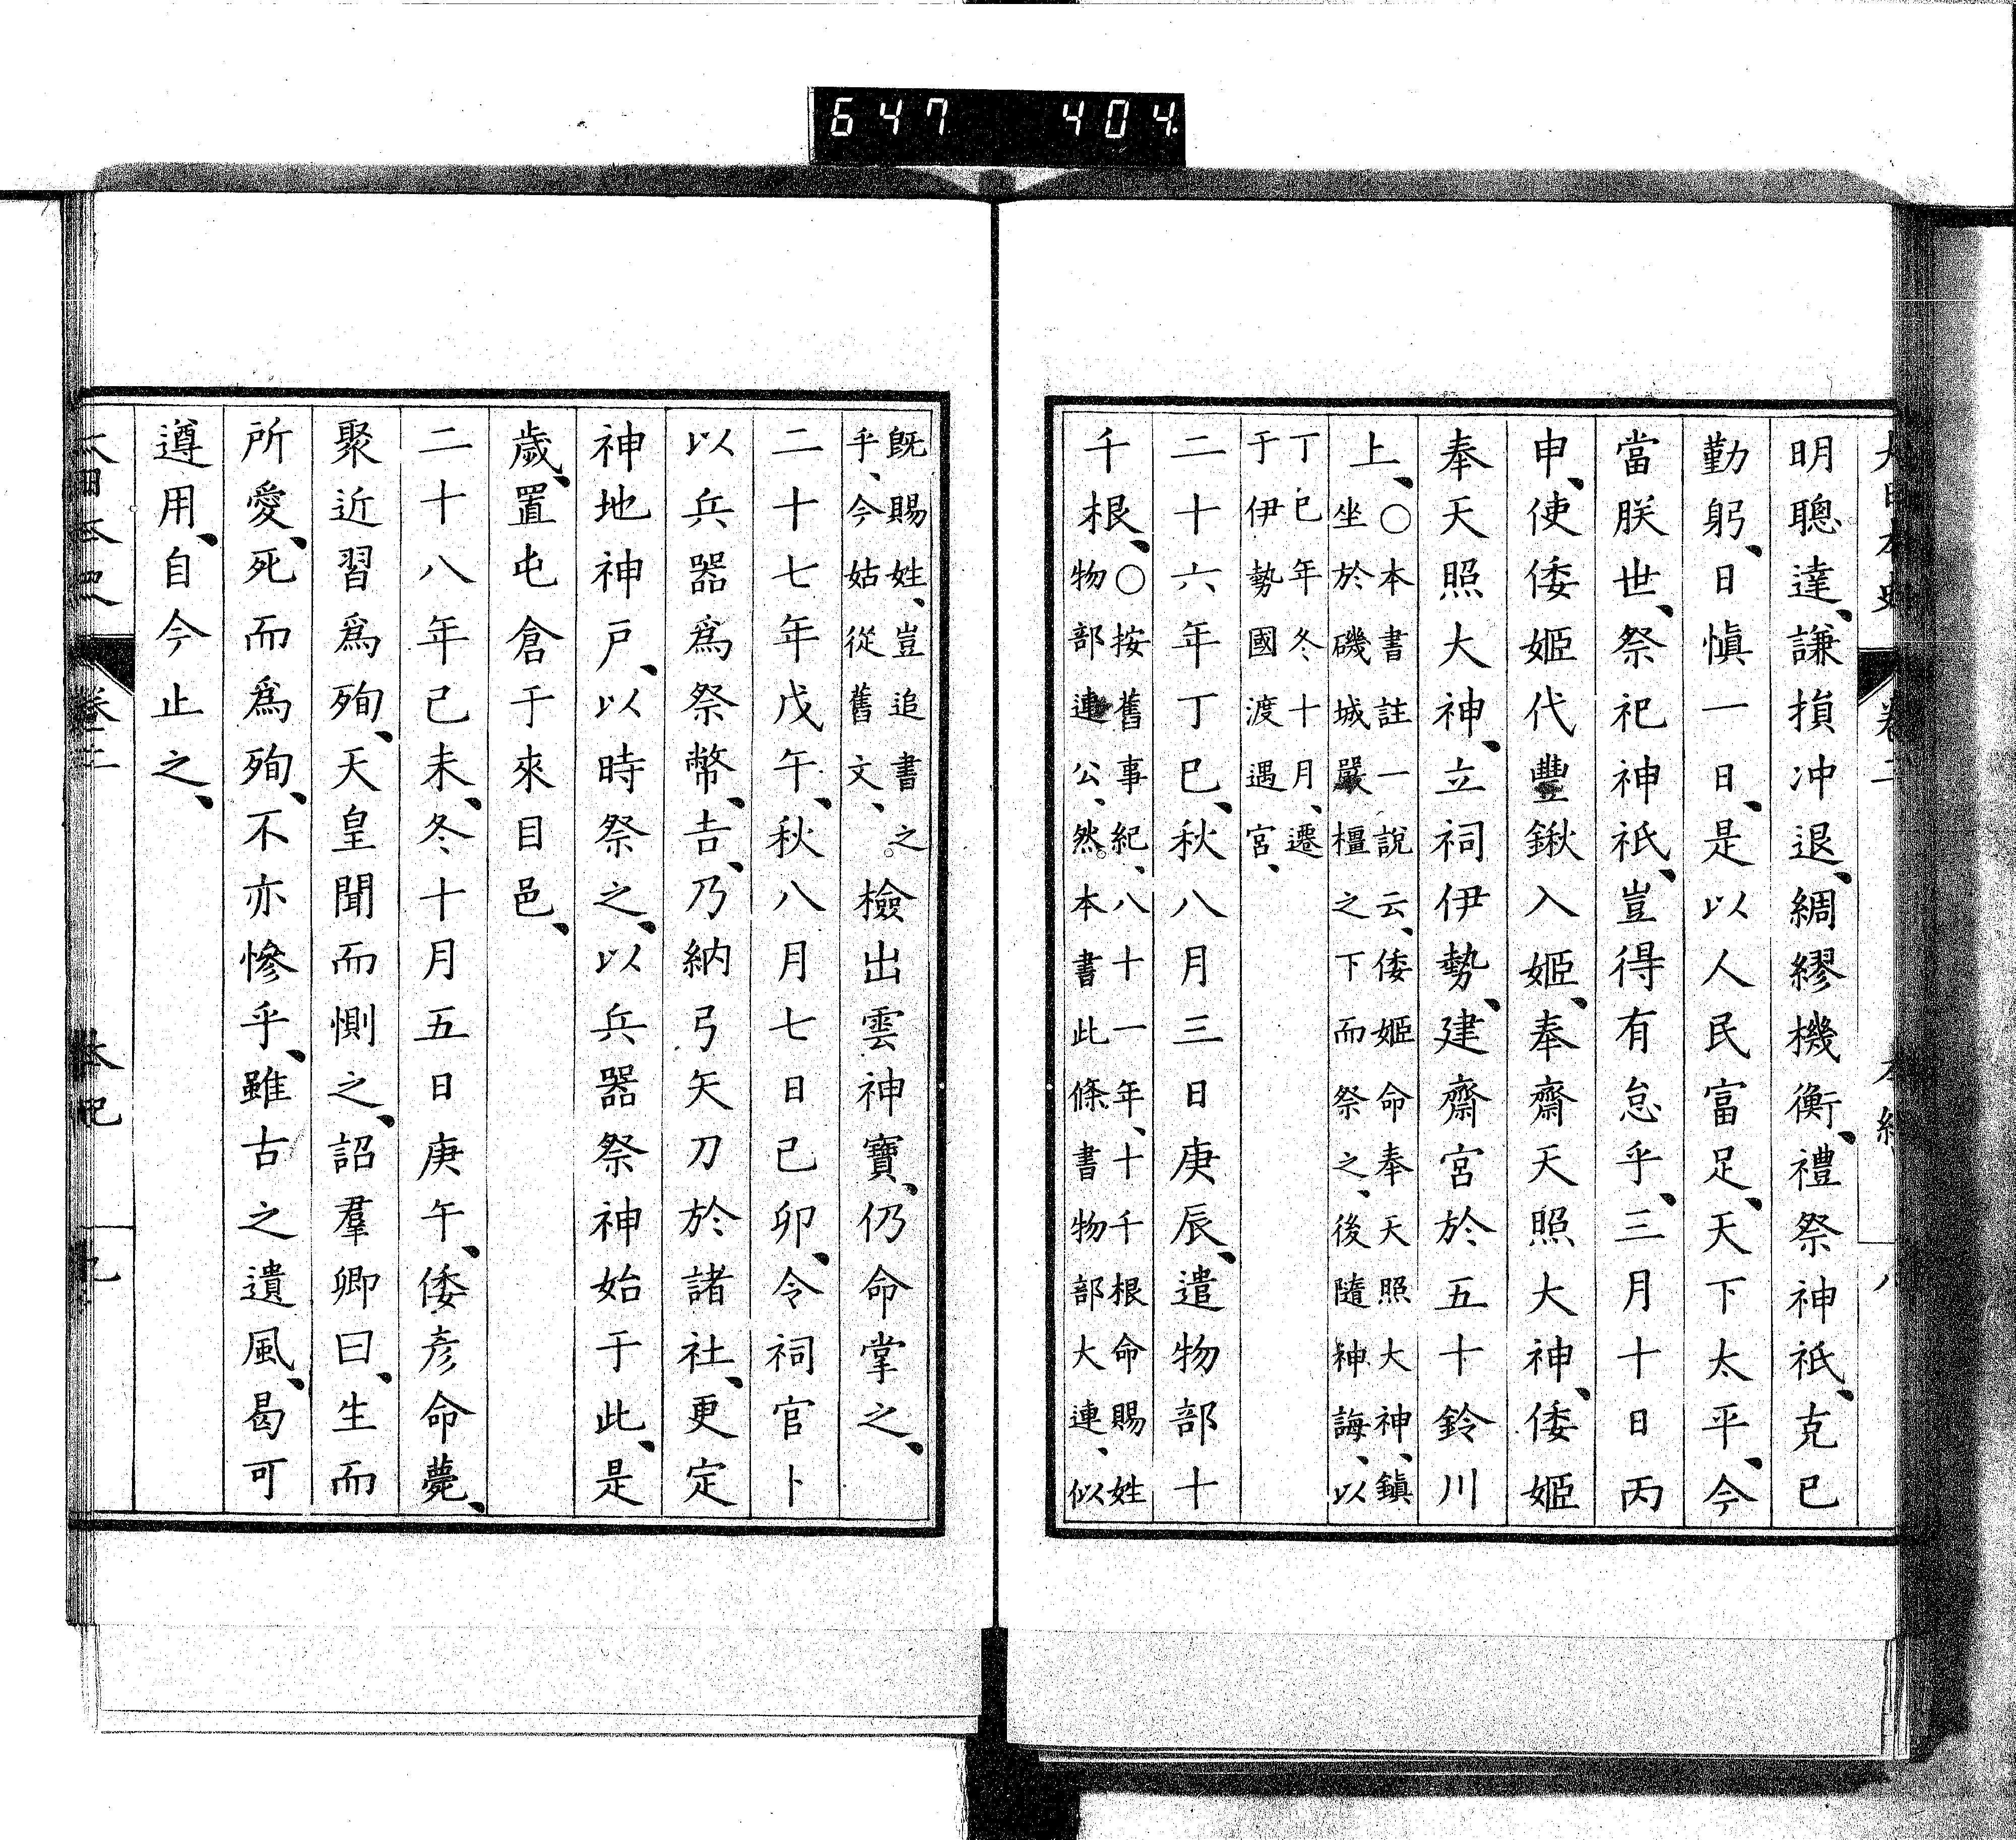 647 404
大日本史 卷二 本紀 八
明聰達、謙損冲退、綢繆機衡、禮祭神祇、克已
勤躬、日愼一日、是以人民富足、天下太平、今
當朕世、祭祀神祇、豈得有怠乎、三月十日丙
申、使倭姬代豐鍬入姬、奉齋天照大神、倭姬
奉天照大神、立祠伊勢、建齋宮於五十鈴川
上、〇本書註一說云、倭姬命奉天照大神、鎭
坐於磯城嚴橿之下而祭之、後隨神誨、以
丁已年冬十月、遷
于伊勢國渡遇宮、
二十六年丁巳、秋八月三日庚辰、遣物部十
千根、〇按舊事紀、八十一年、十千根命賜姓
物部連公、然本書此條、書物部大連、似
旣賜姓、豈追書之
乎、今姑從舊文、檢出雲神寶、仍命掌之、
二十七年戊午、秋八月七日己卯、令祠官卜
以兵器爲祭幣、吉、乃納弓矢刀於諸社、更定
神地神戶、以時祭之、以兵器祭神始于此、是
歲、置屯倉于來目邑、
二十八年己未、冬十月五日庚午、倭彥命薨、
聚近習爲殉、天皇聞而惻之、詔羣卿曰、生而
所愛、死而爲殉、不亦慘乎、雖古之遺風、曷可
遵用、自今止之、
大日本史 卷二 本紀 九